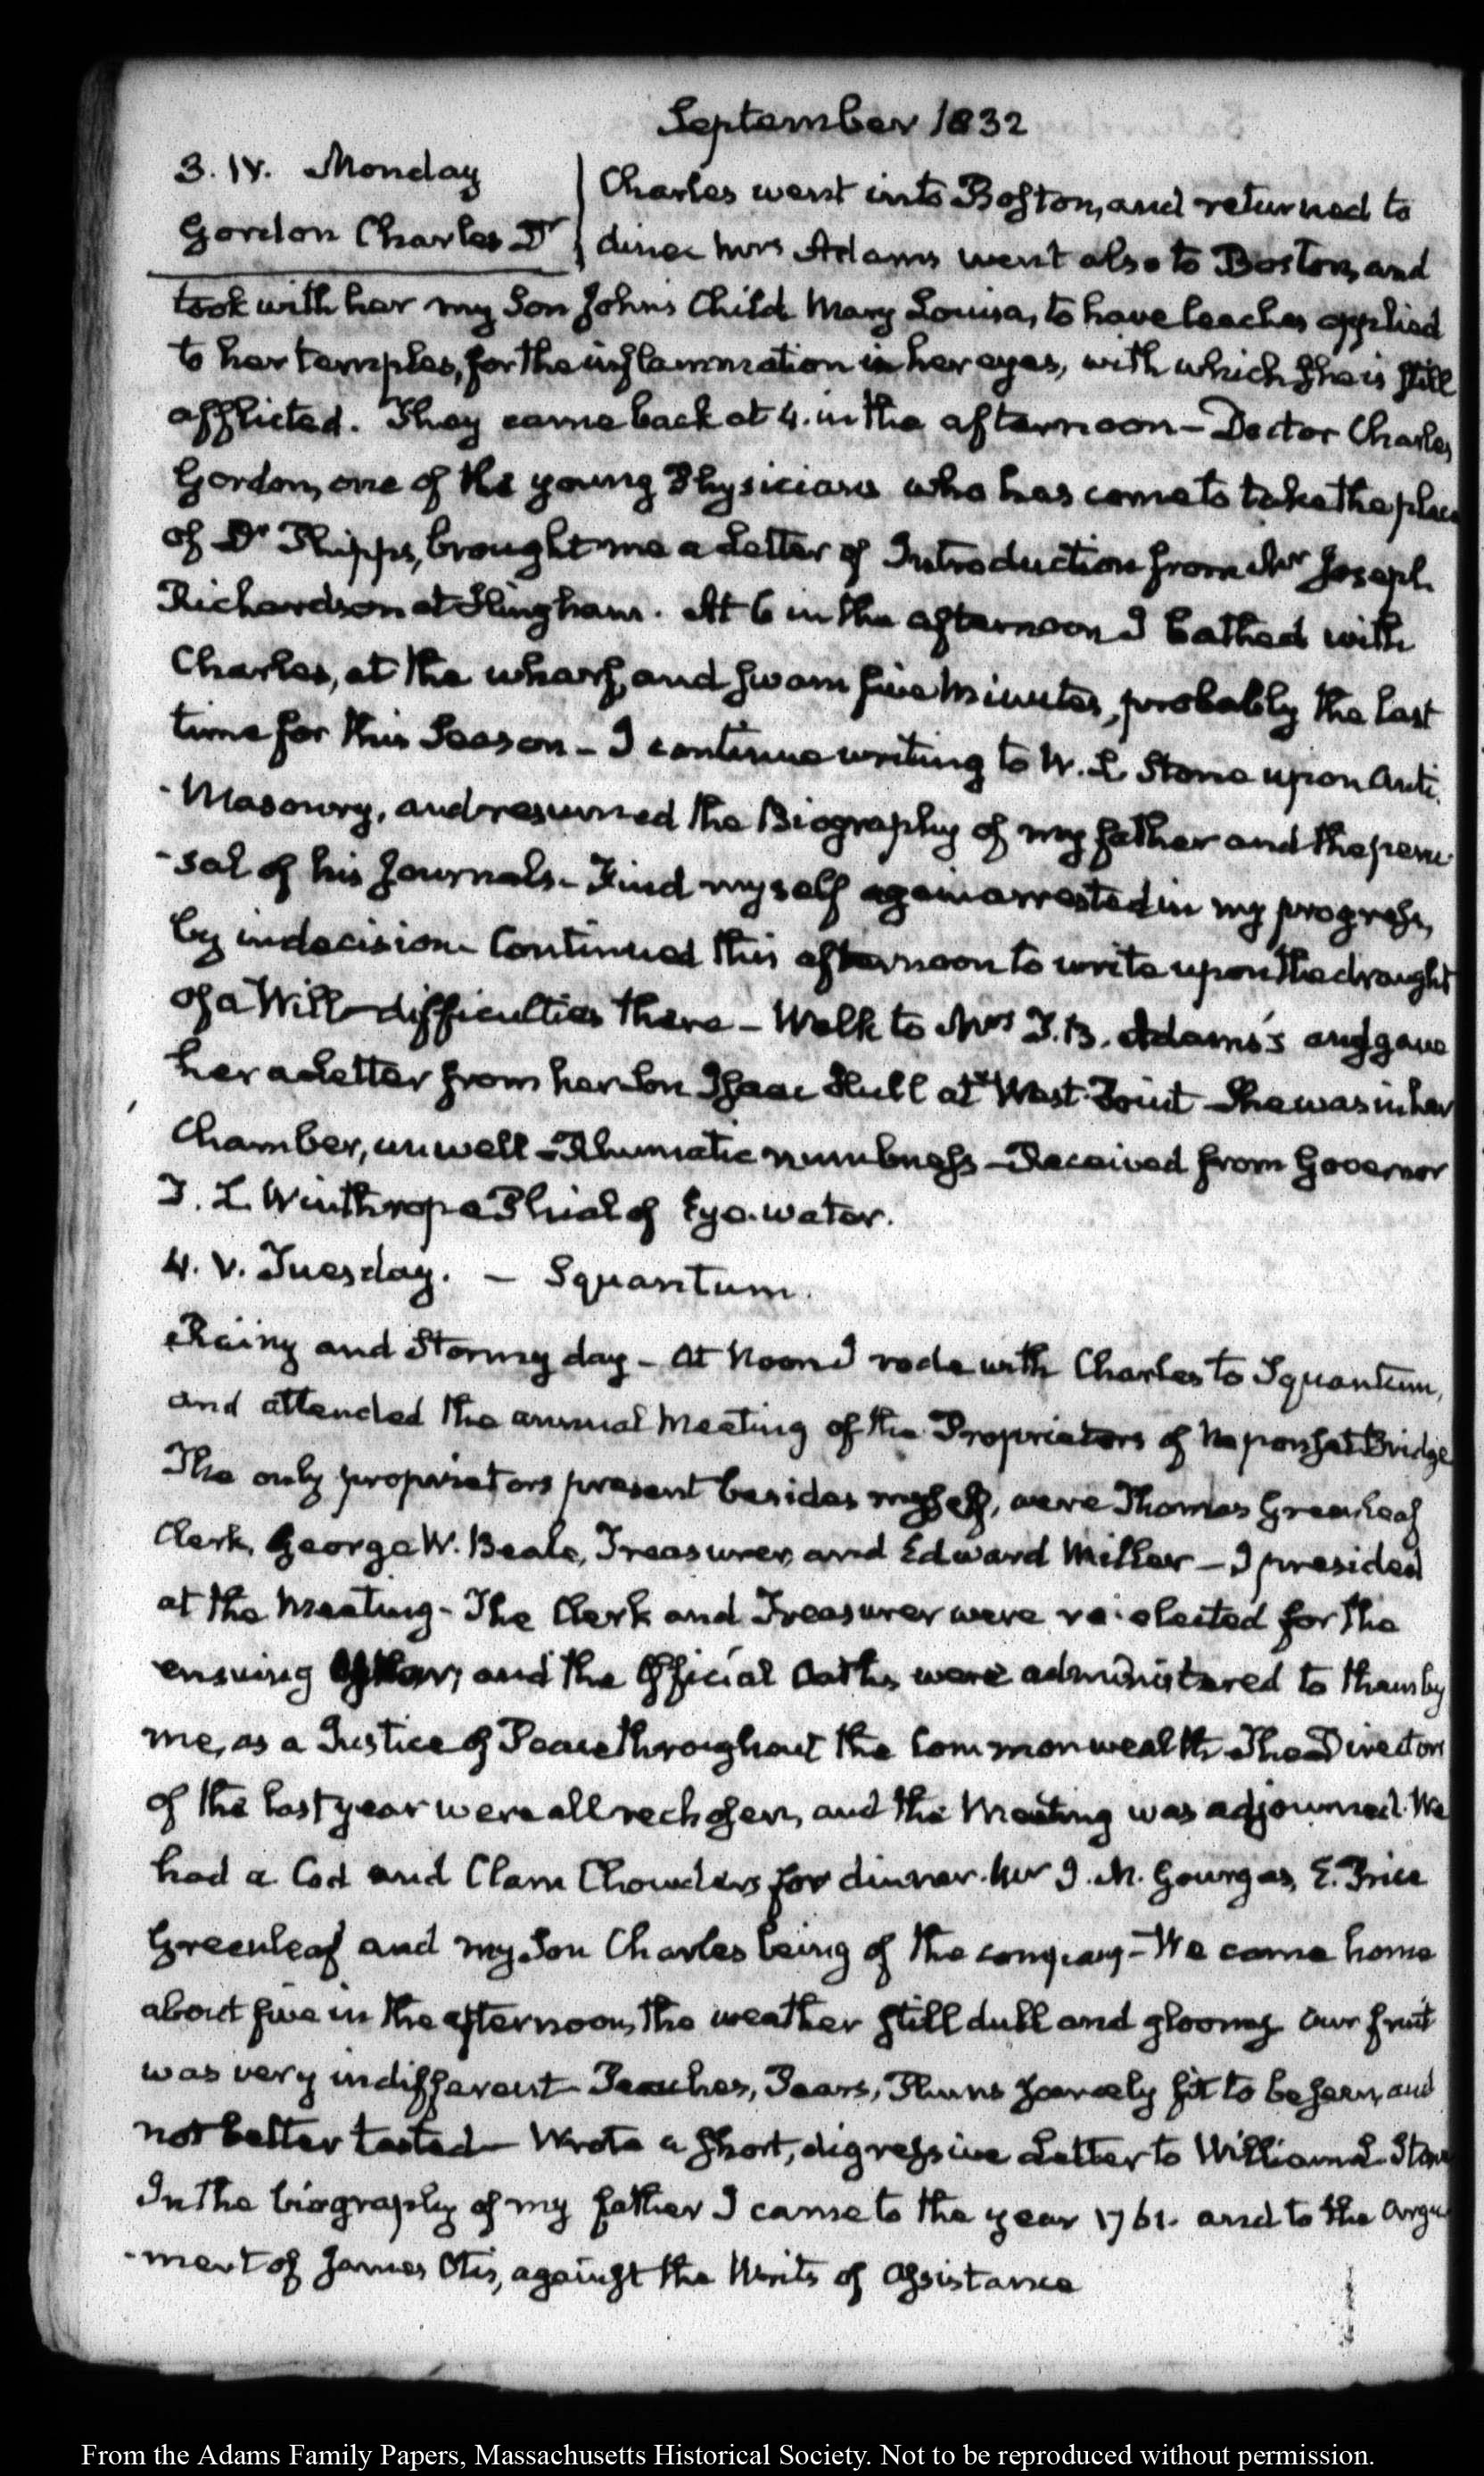 September 1832
3. IV. Monday
Gordon Charles Dr
Charles went into Boston, and returned to
dine. Mrs Adams went also to Boston, and
took with her my Son John's Child Mary Louisa, to have leeches applied
to her temples, for the inflammation in her eyes, with which she is still
afflicted. They came back at 4. in the afternoon - Doctor Charles
Gordon, one of the young Physicians who has come to take the place
of Dr Phipps, brought me a Letter of Introduction from Mr Joseph
Richardson at Hingham. At 6 in the afternoon I bathed with
Charles, at the wharf, and swam five minutes, probably the last
time for this Season - I continue writing to W. L. Stone upon Anti-
-Masonry, and resumed the Biography of my father and the peru-
-sal of his Journals - Find myself again arrested in my progress,
by indecision - Continued this afternoon to write upon the draught
of a Will - difficulties there - Walk to Mrs T. B. Adams's and gave
her a Letter from her Son Isaac Hull at West-Point - She was in her
Chamber, unwell - Rhumatic numbness - Received from Governor
T. L. Winthrop a Phial of Eye-water.
4. V. Tuesday. - Squantum.
Rainy and Stormy day - At Noon I rode with Charles to Squantum,
and attended the annual Meeting of the Proprietors of Neponset Bridge
The only proprietors present besides myself, were Thomas Greenleaf
Clerk, George W. Beale, Treasurer, and Edward Miller - I presided
at the Meeting - The Clerk and Treasurer were re-elected for the
ensuing and the Official Oaths were administered to them by
me, as a Justice of Peace throughout the Commonwealth - The Directors
of the last year were all rechosen, and the Meeting was adjourned. We
had a Cod and Clam Chowders for dinner. Mr J. M. Gourgas, E. Price
Greenleaf and my Son Charles being of the company - We came home
about five in the afternoon, the weather still dull and gloomy. Our fruit
was very indifferent - Peaches, Pears, Plums scarcely fit to be seen, and
not better tasted - Wrote a short, digressive Letter to William L. Stone
In the biography of my father I came to the year 1761. and to the Argu-
-ment of James Otis, against the Writs of Assistance
From the Adams Family Papers, Massachusetts Historical Society. Not to be reproduced without permission.